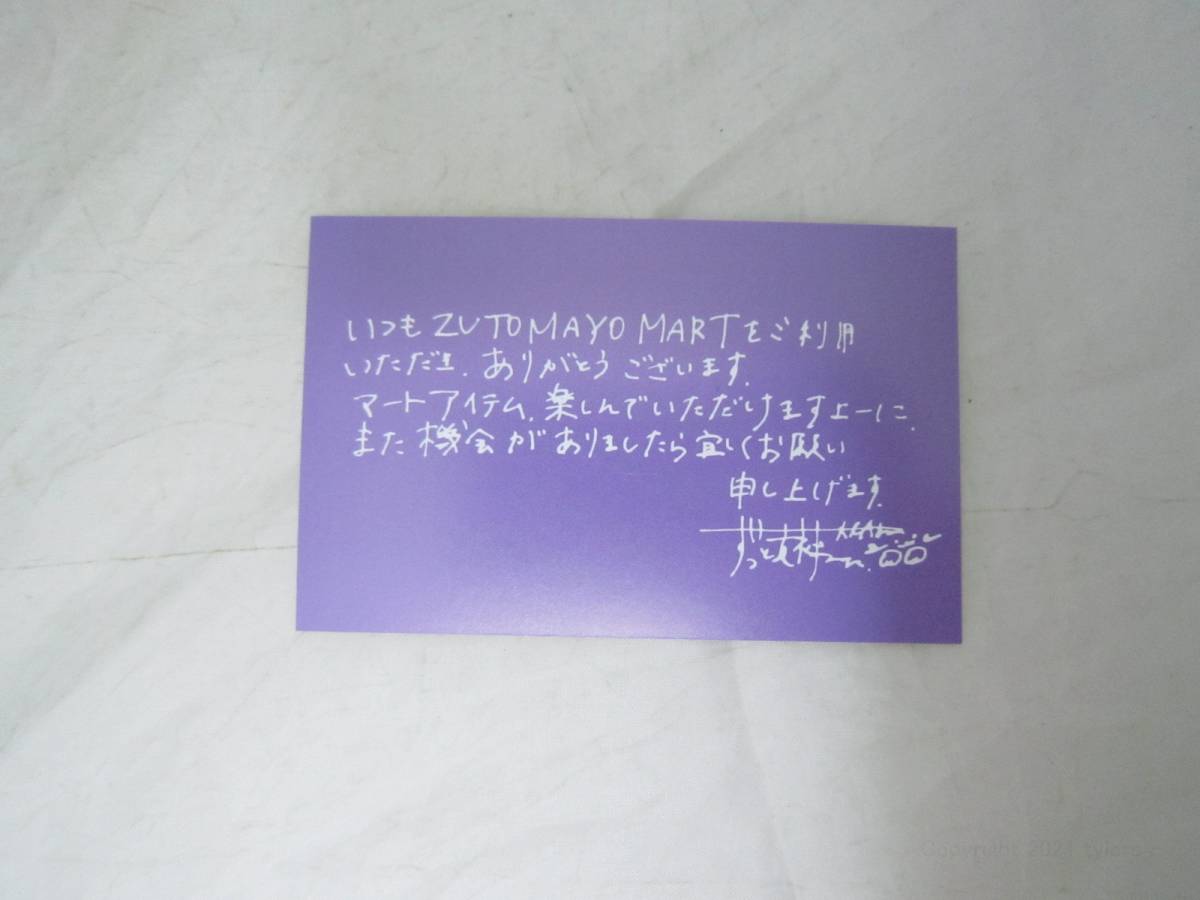 いつもZUTOMAYO MARTをご利用
いただき、ありがとうございます。
マートアイテム、楽しんでいただけますよーに、
また機会がありましたら宜しくお願い
申し上げます。
ずっと真夜中
Copyright 2021